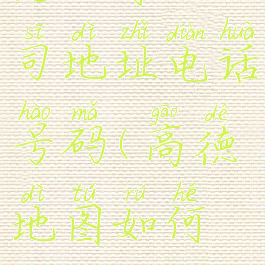 sī dì zhǐ diàn huà
司地址电话
hào mǎ gāo dé
号码(高德
dì tú rú hé
地图如何